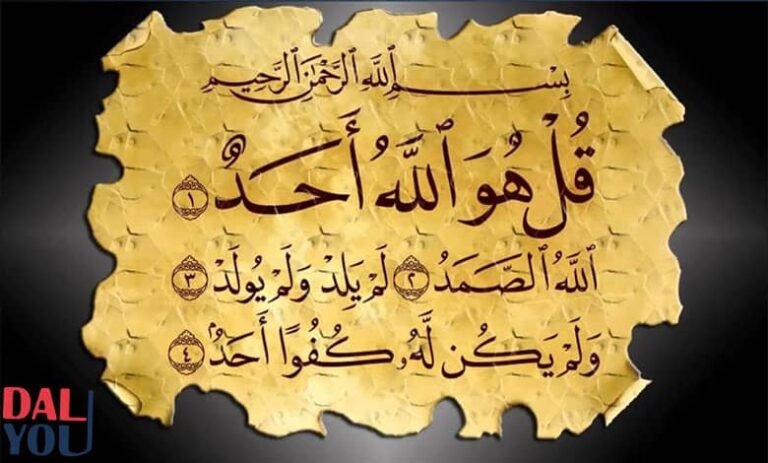 بِسْمِ ٱللَّهِ ٱلرَّحْمَٰنِ ٱلرَّحِيمِ
قُلْ هُوَ ٱللَّهُ أَحَدٌ ١
ٱللَّهُ ٱلصَّمَدُ ٢ لَمْ يَلِدْ وَلَمْ يُولَدْ ٣
وَلَمْ يَكُن لَّهُۥ كُفُوًا أَحَدٌۢ ٤
DAL
YOU